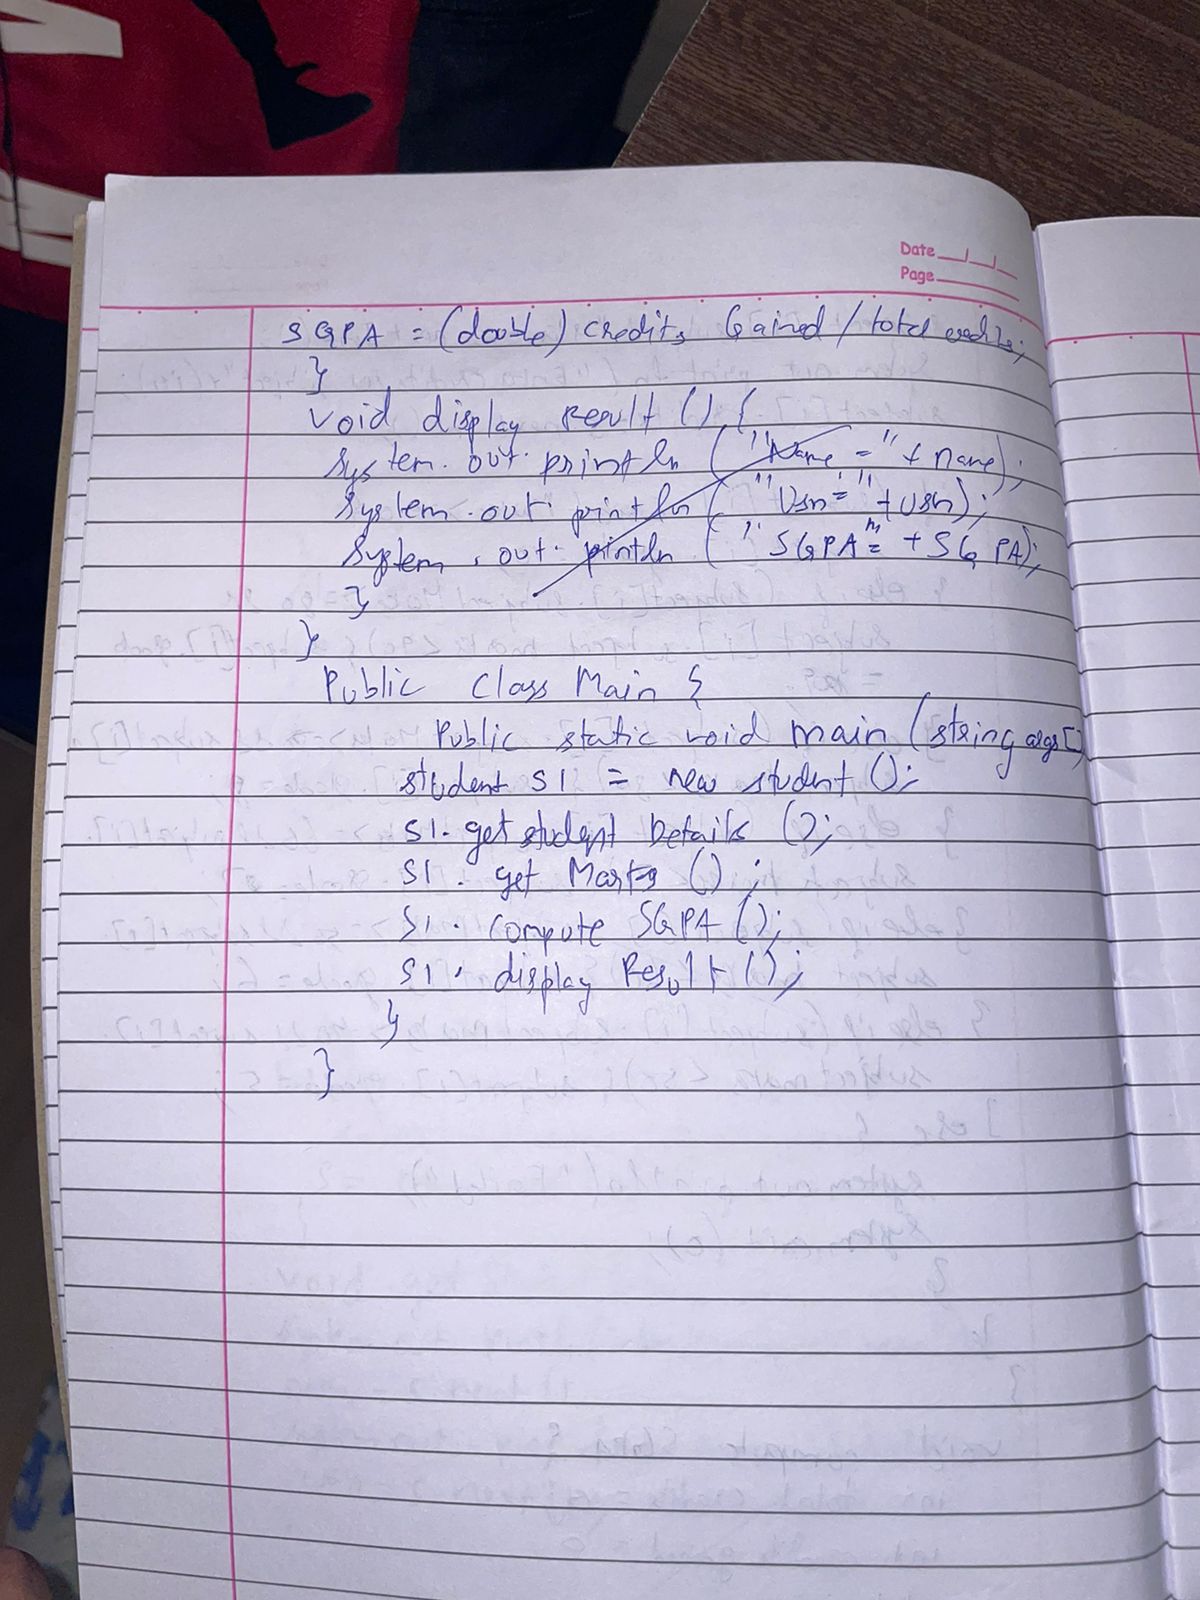 Date
Page
SGPA = (double) credits Gained / total credits;
}
void display Result () {
System. out. println ("Name =" + name);
System. out. println ("Usn=" + usn);
System. out. println ("SGPA=" + SGPA);
}
}
Public Class Main {
Public static void main (string args[]
student S1 = new student ();
S1. get student Details ();
S1. get Marks ();
S1. compute SGPA ();
S1. display Result ();
}
}